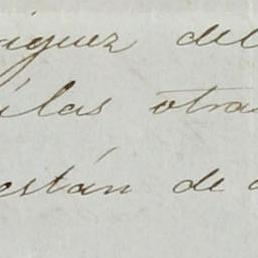 iguez del
ilas otra
están de